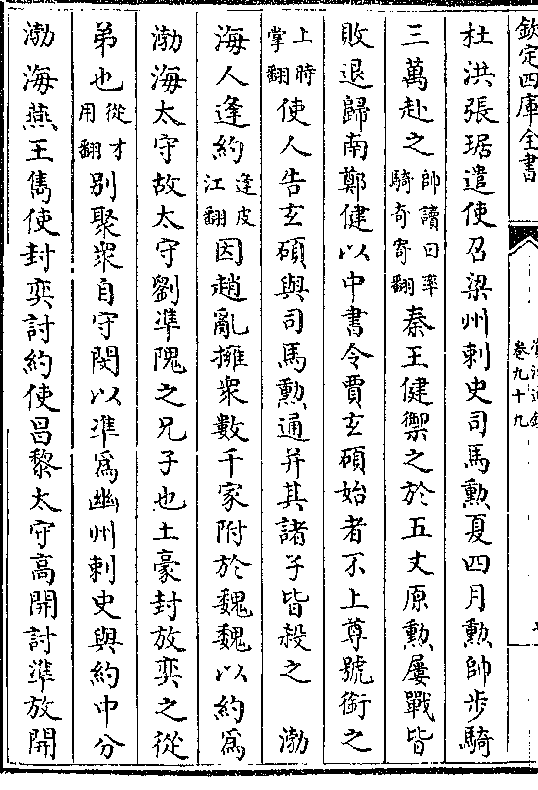 欽定四庫全書
卷九十九
杜洪張琚遣使召梁州刺史司馬勲夏四月勲帥步騎
三萬赴之帥讀曰率騎奇寄翻秦王健禦之於五丈原勲屢戰皆
敗退歸南鄭健以中書令賈玄碩始者不上尊號銜之
上時掌翻使人告玄碩與司馬勲通并其諸子皆殺之　渤
海人逄約逄皮江翻因趙亂擁衆數千家附於魏魏以約為
渤海太守故太守劉準隗之兄子也土豪封放奕之從
弟也從才用翻别聚衆自守閔以準為幽州刺史與約中分
渤海燕王雋使封奕討約使昌黎太守高開討準放開